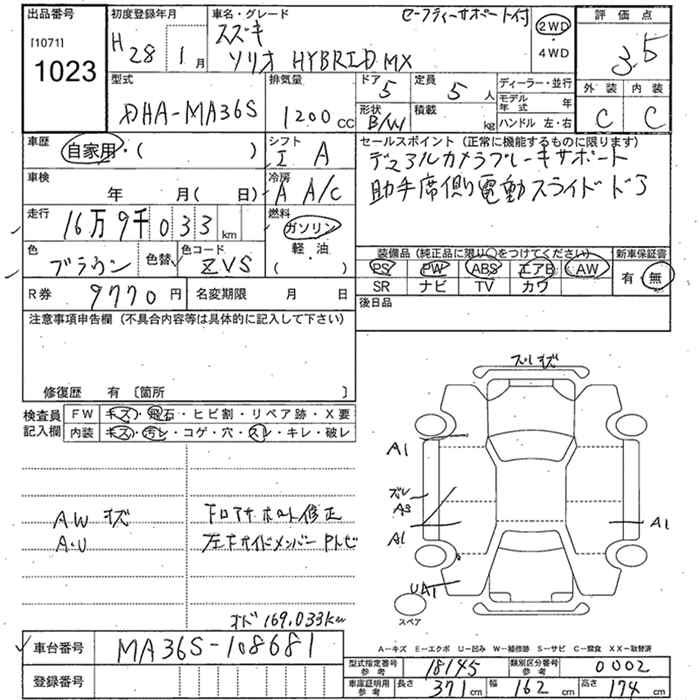 出品番号
[1071]
1023
初度登録年月
H 28 年 1 月
車名・グレード
セーフティーサポート付
スズキ
ソリオ HYBRID MX
2WD
・
4WD
評価点
3.5
外装 内装
C C
型式
DHA-MA36S
排気量
1200 cc
ドア 5
形状 B/W
定員 5 人
積載 kg
ディーラー・並行
モデル年式 年
ハンドル 左・右
車歴 自家用・( )
シフト
I A
セールスポイント (正常に機能するものに限ります)
デュアルカメラブレーキサポート
助手席側電動スライドドア
車検 年 月( 日)
冷房
A A/C
走行 16万9千033 km
燃料
ガソリン
軽・油
( )
色 ブラウン 色替 色コード ZVS
装備品 (純正品に限り○をつけてください) 新車保証書
PS PW ABS エアB AW 有・無
SR ナビ TV カワ
R券 9770 円 名変期限 月 日
後日品
注意事項申告欄 (不具合内容等は具体的に記入して下さい)
修復歴 有 〔箇所 〕
検査員記入欄
FW キズ・飛石・ヒビ割・リペア跡・X要
内装 キズ・汚レ・コゲ・穴・スレ・キレ・破レ
AW キズ
A・U
下回りサポート修正
左右サイドメンバー
オド 169.033km
スレキズ
A1
スレ
A3
A1
UA1
A1
スペア
A-キズ E-エクボ U-凹み W-補修跡 S-サビ C-腐食 XX-取替済
車台番号 MA36S-108681
登録番号
型式指定番号 参考 18145 類別区分番号 参考 0002
車庫証明用 参考 長さ 371 cm 幅 162 cm 高さ 174 cm